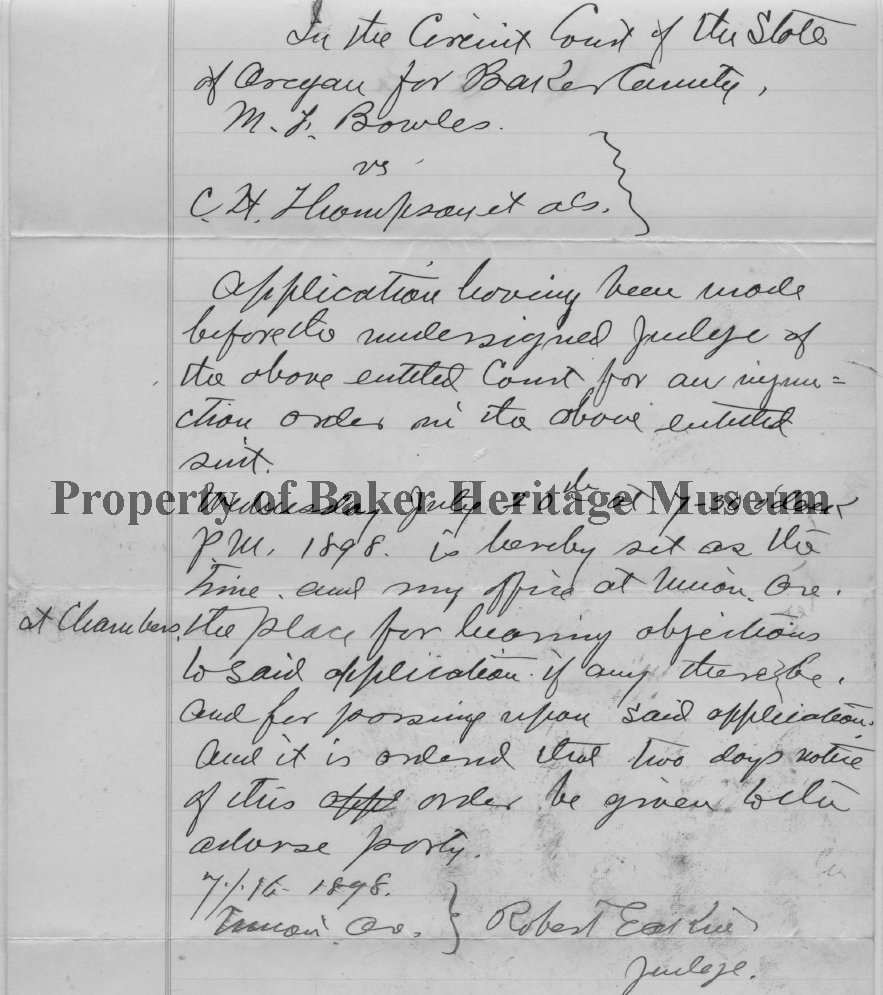 In the Circuit Court of the State
of Oregon for Baker County,
M. F. Bowles.
vs
C. H. Thompson et als.
Application having been made
before the undersigned Judge of
the above entitled Court for an injun=
ction order in the above entitled
suit.
Property of Baker Heritage Museum
Wednesday July 20th at 7-30 o'clock
P.M. 1898. is hereby set as the
time. and my office at Union. Ore.
at Chambers. the place for hearing objections
to said application if any there be.
and for passing upon said application.
And it is ordered that two days notice
of this appl order be given to the
adverse party.
7/16-1898.
Union Or. Robert Eakin
Judge.